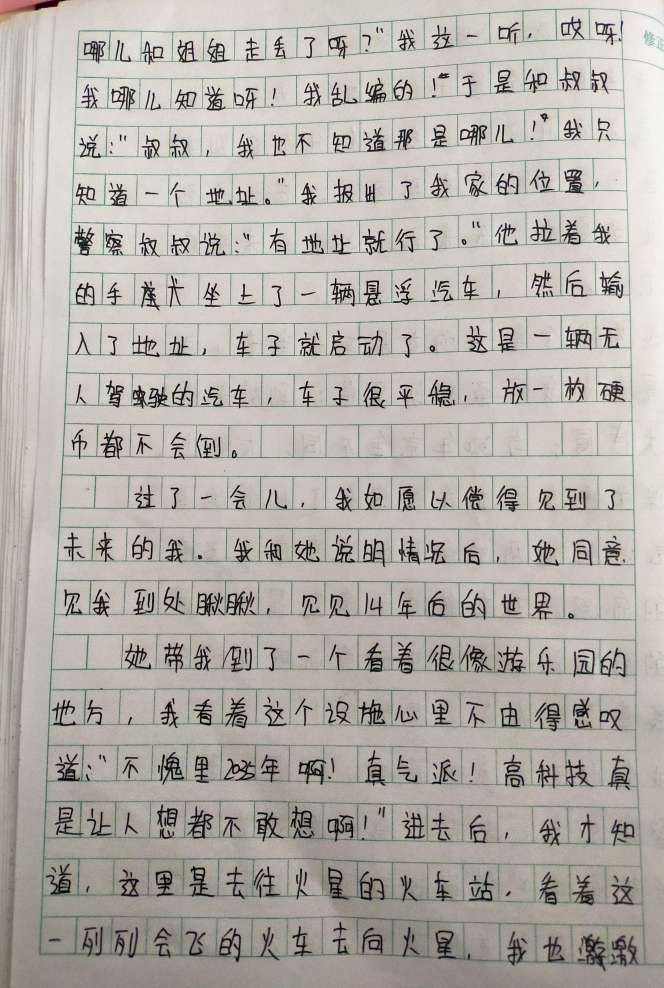 哪儿和姐姐走丢了呀?"我这一听,哎呀!
我哪儿知道呀!我乱编的!"于是和叔叔
说:"叔叔,我也不知道那是哪儿!"我只
知道一个地址。"我报出了我家的位置,
警察叔叔说:"有地址就行了。"他拉着我
的手坐上了一辆悬浮汽车,然后输
入了地址,车子就启动了。这是一辆无
人驾驶的汽车,车子很平稳,放一放硬
币都不会倒。
过了一会儿,我如愿以偿得见到了
未来的我。我和她说明情况后,她同意
见我到处瞅瞅,见见14年后的世界。
她带我到了一个看着很像游乐园的
地方,我看着这个设施心里不由得感叹
道:"不愧里2035年啊!真气派!高科技真
是让人想都不敢想啊!"进去后,我才知
道,这里是去往火星的火车站,看着这
一列列会飞的火车去向火星,我也激